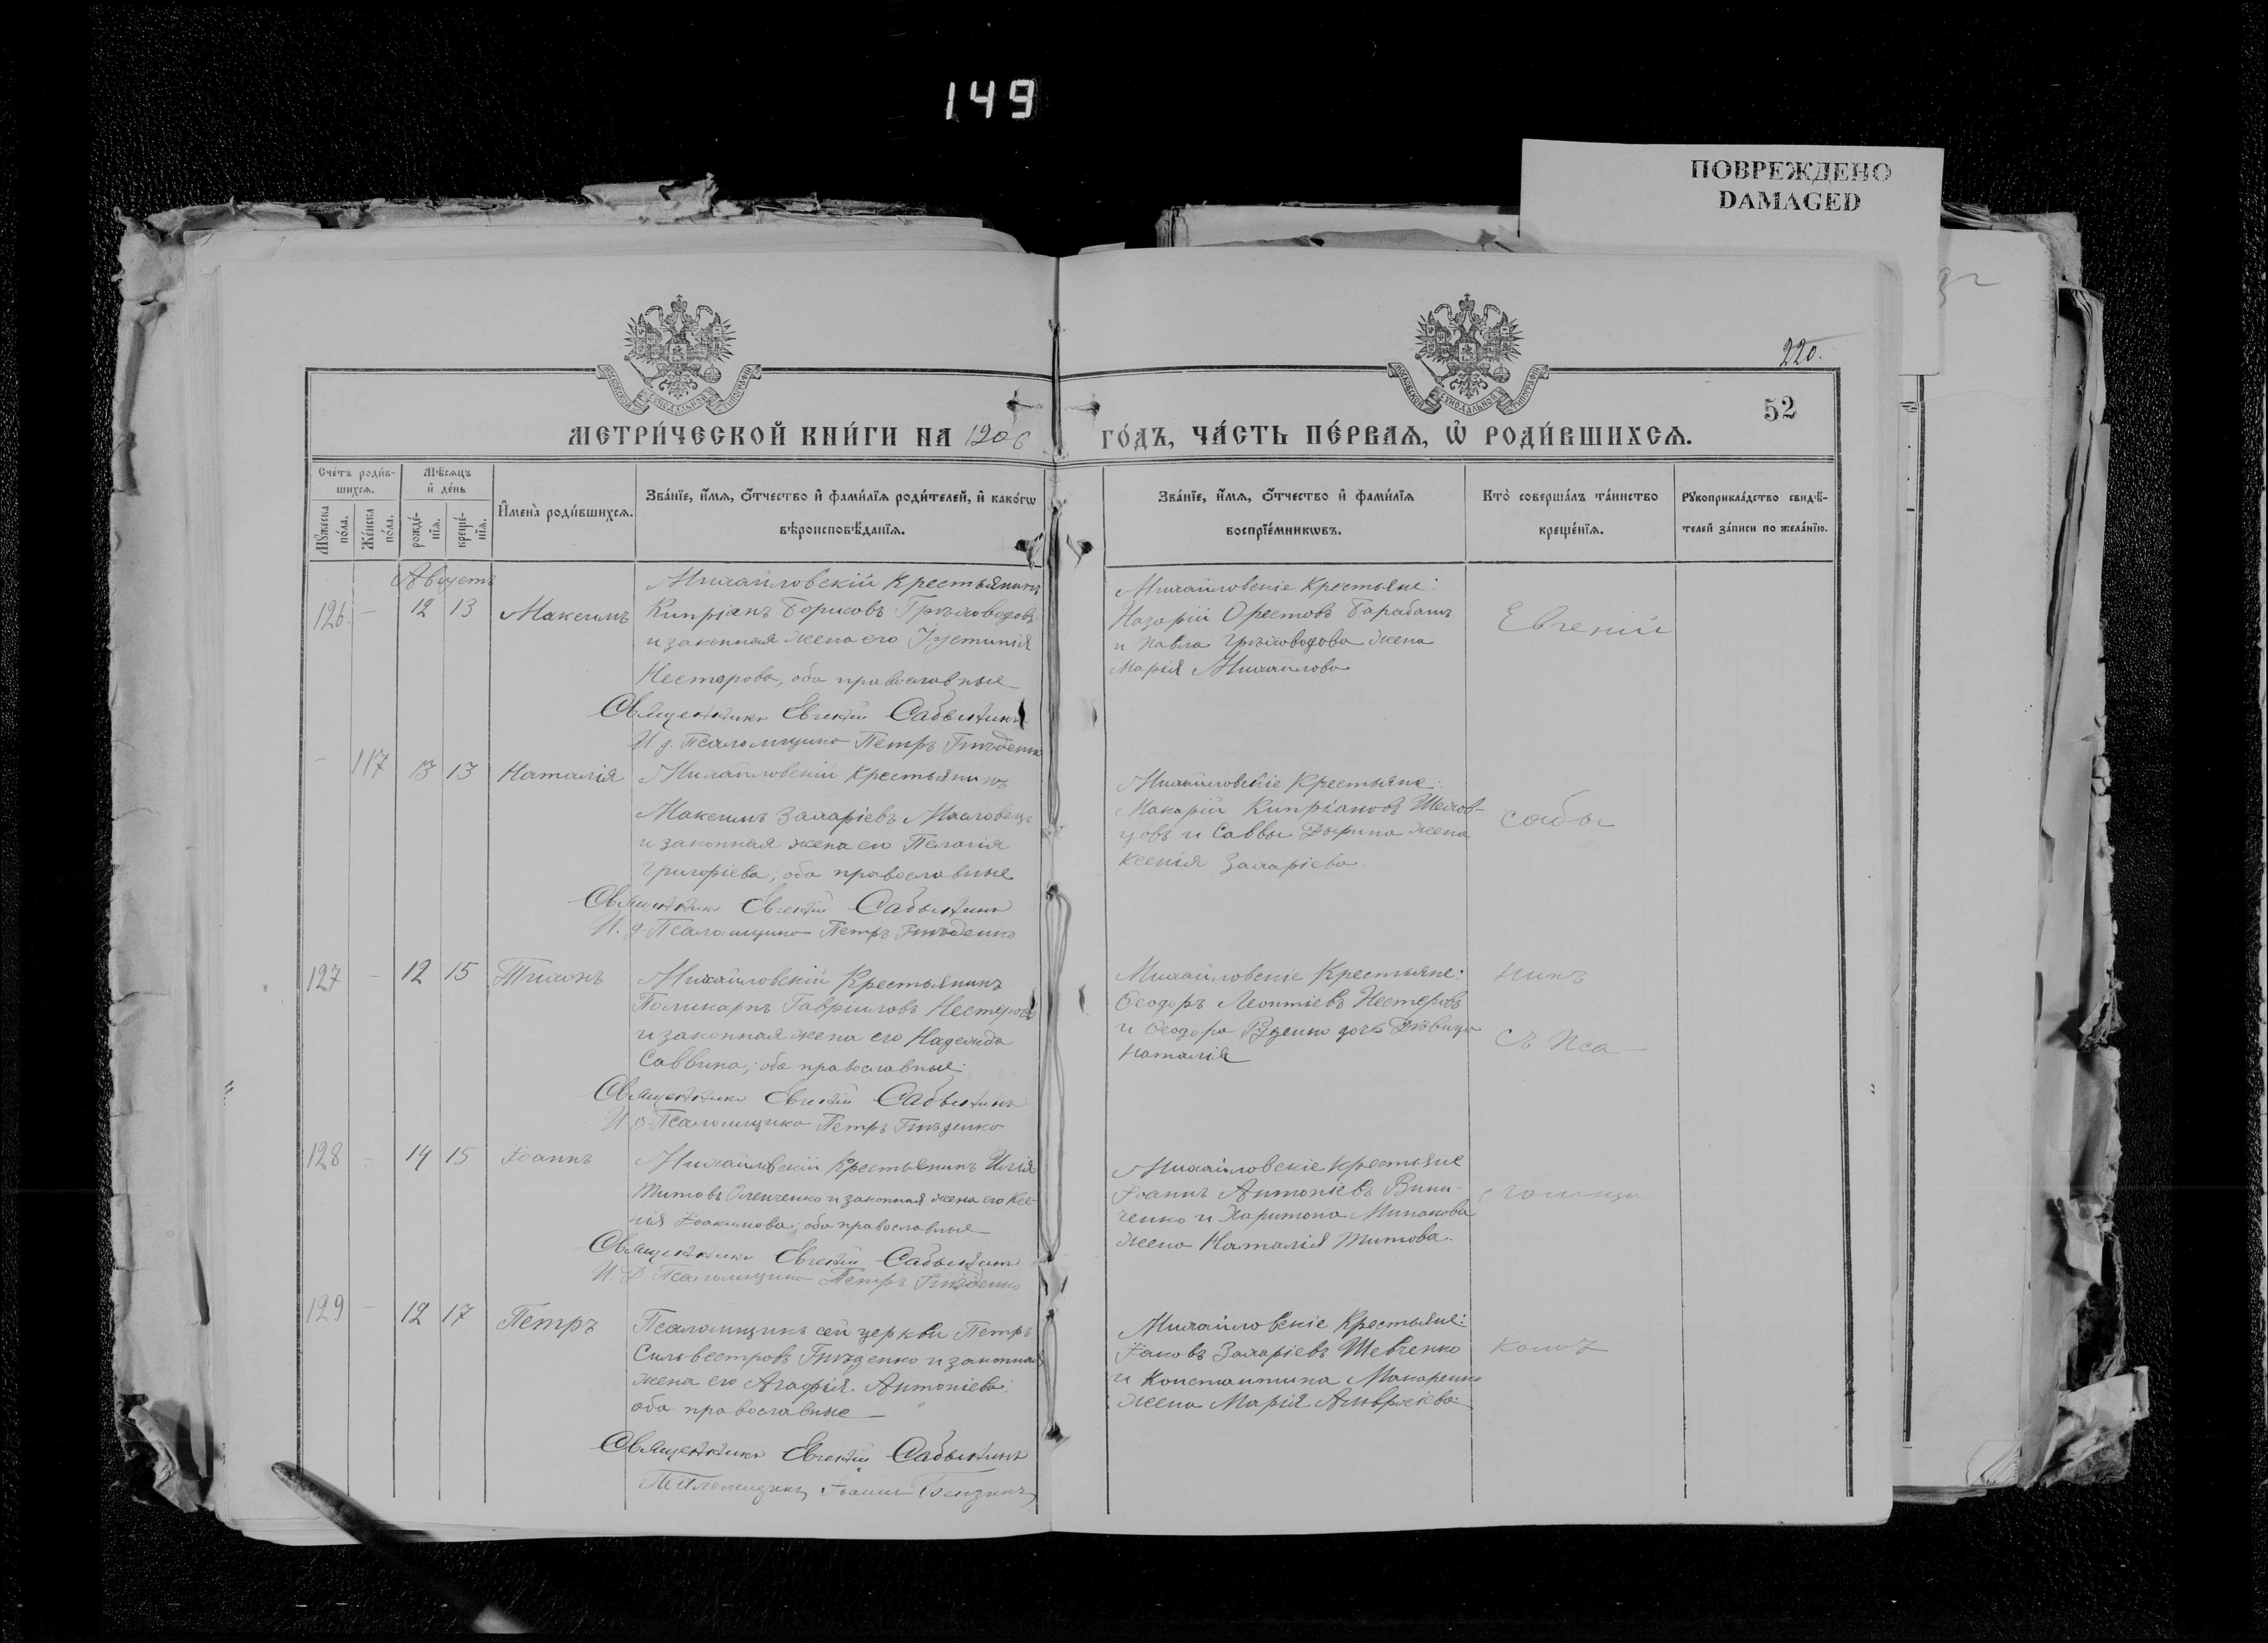 149
ПОВРЕЖДЕНО
DAMAGED
220.
52
МОСКОВСКОЙ СѴНОДАЛЬНОЙ ТИПОГРАФІИ
МОСКОВСКОЙ СѴНОДАЛЬНОЙ ТИПОГРАФІИ
МЕТРИ́ЧЕСКОЙ КНИ́ГИ НА 1906
ГО́ДЪ, ЧА́СТЬ ПЕ́РВАѦ, Ѡ҆ РОДИ́ВШИХСѦ.
Сче́тъ роди́в-
шихсѧ.
Мꙋжеска по́ла.
Же́нска по́ла.
Мѣ́сѧцъ
и҆ де́нь
рожде́-
нїѧ.
креще́-
нїѧ.
И҆мена̀ роди́вшихсѧ.
Зва́нїе, и҆́мѧ, ѻ҆́тчество и҆ фами́лїѧ роди́телей, и҆ како́гѡ
вѣроисповѣ́данїѧ.
Зва́нїе, и҆́мѧ, ѻ҆́тчество и҆ фами́лїѧ
воспрїе́мникѡвъ.
Кто̀ соверша́лъ та́инство
креще́нїѧ.
Рꙋкоприкла́дство свидѣ́-
телей за́писи по жела́нїю.
Августъ
126 - 12 13 Максимъ
Михайловскій крестьянинъ
Кипріанъ Борисовъ
и законная жена его Іустинія
Нестерова, оба православные
Священникъ Евгеній
И. д. Псаломщика Петръ Гнѣденко
Михайловскіе Крестьяне:
Назарій Орестовъ Барабашъ
и Павла жена
Марія Михайлова
Евгеній
- 117 13 13 Наталія
Михайловскій крестьянинъ
Максимъ Захаріевъ Масловецъ
и законная жена его Пелагія
Григоріева; оба православные
Священникъ Евгеній
И. д. Псаломщика Петръ Гнѣденко
Михайловскіе Крестьяне:
Макарій Кипріановъ
и Саввы Дырина жена
Ксенія Захаріева.
127 - 12 15 Тихонъ
Михайловскій Крестьянинъ
Поликарпъ Гавріиловъ Нестеровъ
и законная жена его Надежда
Саввина; оба православные.
Священникъ Евгеній
И. д. Псаломщика Петръ Гнѣденко
Михайловскіе Крестьяне:
Ѳеодоръ Леонтіевъ Нестеровъ
и Ѳеодора Руденко дочь Дѣвица
Наталія
никъ
съ Пса-
128 - 14 15 Іоаннъ
Михайловскій Крестьянинъ Илія
Титовъ Оленченко и законная жена его Ксе-
нія Іоакимова; оба православные
Священникъ Евгеній
И. Д. Псаломщика Петръ Гнѣденко
Михайловскіе крестьяне
Іоаннъ Антоніевъ Винни-
ченко и Харитона Минакова
жена Наталія Титова.
ломщи
129 - 12 17 Петръ
Псаломщикъ сей церкви Петръ
Сильвестровъ Гнѣденко и законная
жена его Агафія Антоніева:
оба православные —
Священникъ Евгеній
Псаломщикъ Іоаннъ
Михайловскіе Крестьяне:
Іаковъ Захаріевъ Шевченко
и Константина Макаренко
жена Марія Амвросіева.
комъ